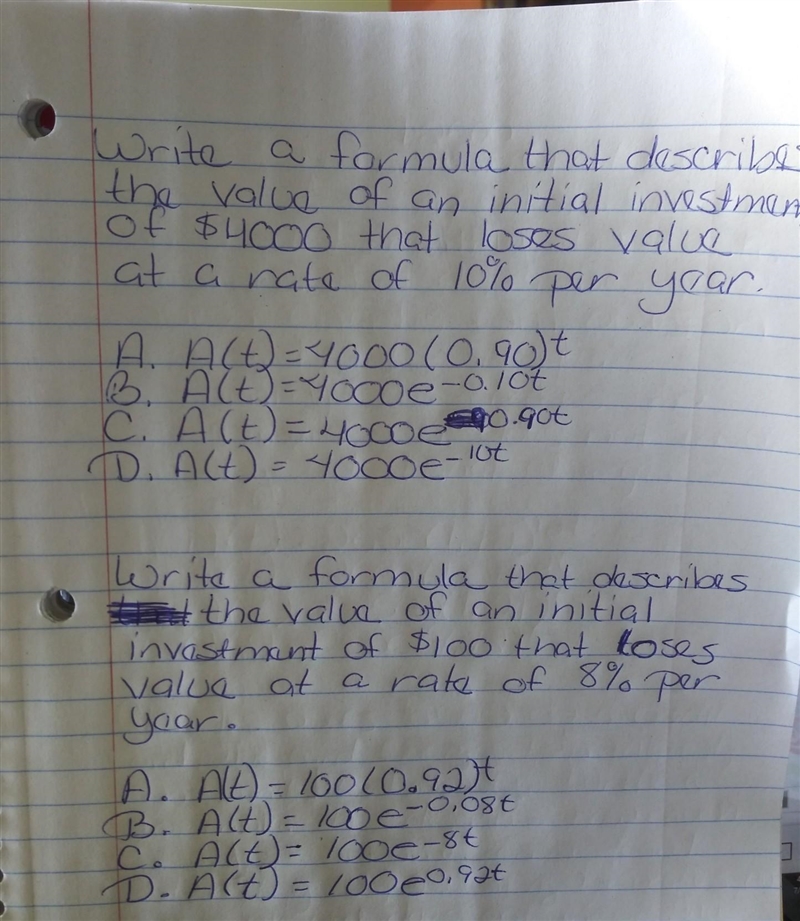 Write a formula that describes
the value of an initial investmen
of $4000 that loses value
at a rate of 10% per year.
A. A(t)=4000(0.90)t
B. A(t)=4000e-0.10t
C. A(t)=4000e0.90t
D. A(t)=4000e-10t
Write a formula that describes
the value of an initial
investment of $100 that loses
value at a rate of 8% per
year.
A. A(t)=100(0.92)t
B. A(t)=100e-0.08t
C. A(t)=100e-8t
D. A(t)=100e0.92t